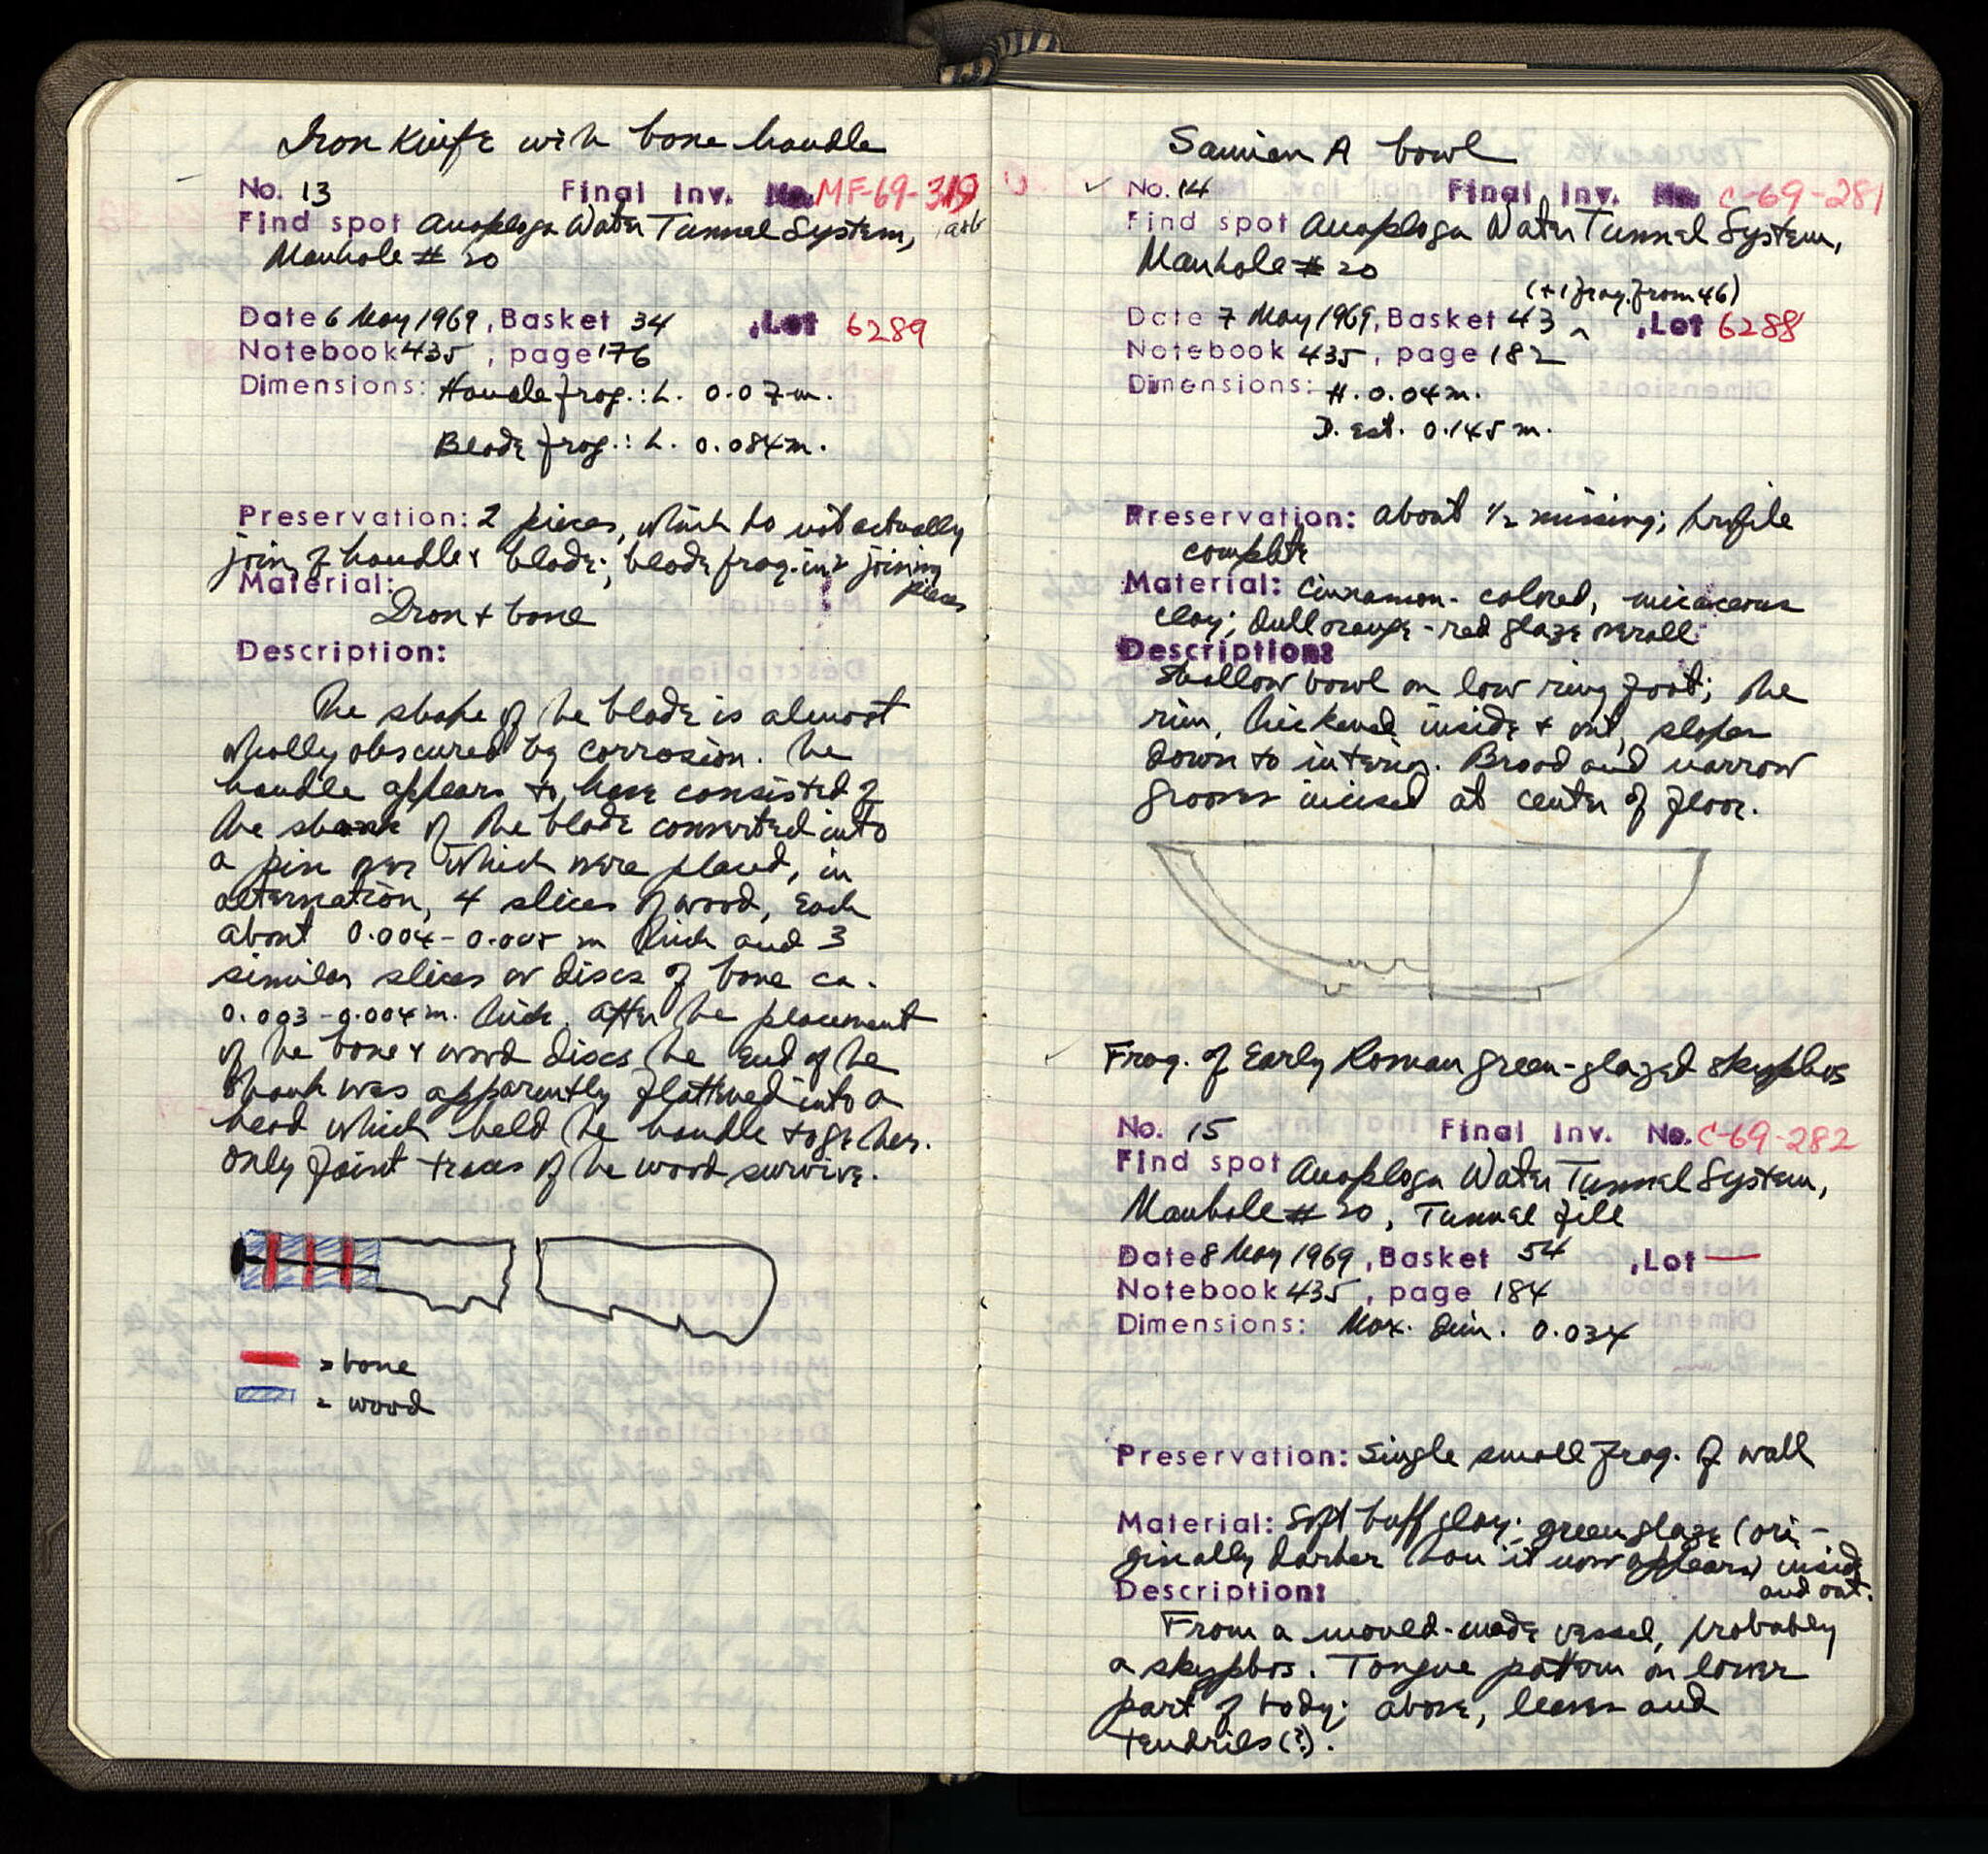 Iron Knife with bone handle
No. 13 Final Inv. No. MF-69-319
Find spot Anaploga Water Tunnel System,
Manhole # 20
Date 6 May 1969, Basket 34 , Lot 6289
Notebook 435, page 176
Dimensions: Handle frag.: L. 0.07 m.
Blade frag.: L. 0.084 m.
Preservation: 2 pieces, which do not actually
join, of handle & blade; blade frag. in 2 joining
pieces
Material:
Iron + bone
Description:
The shape of the blade is almost
wholly obscured by corrosion. The
handle appears to have consisted of
the shank of the blade converted into
a pin over which were placed, in
alternation, 4 slices of wood, each
about 0.004-0.005 m thick and 3
similar slices or discs of bone ca.
0.003-0.004 m. thick. After the placement
of the bone & wood discs the end of the
shank was apparently flattened into a
head which held the handle together.
Only faint traces of the wood survive.
= bone
= wood
Samian A bowl
✓ No. 14 Final Inv. No. C-69-281
Find spot Anaploga Water Tunnel System,
Manhole # 20
(+1 frag. from 46)
Date 7 May 1969, Basket 43 ^ , Lot 6288
Notebook 435, page 182
Dimensions: H. 0.04 m.
D. est. 0.145 m.
Preservation: about ½ missing; profile
complete
Material: Cinnamon-colored, micaceous
clay; dull orange-red glaze overall
Description:
Shallow bowl on low ring foot; the
rim, thickened inside & out, slopes
down to interior. Broad and narrow
grooves incised at center of floor.
✓ Frag. of Early Roman green-glazed skyphos
No. 15 Final Inv. No. C-69-282
Find spot Anaploga Water Tunnel System,
Manhole # 20, Tunnel fill
Date 8 May 1969, Basket 54 , Lot —
Notebook 435, page 184
Dimensions: Max. dim. 0.034
Preservation: Single small frag. of wall
Material: Soft buff clay; green glaze (ori-
ginally darker than it now appears) inside
and out.
Description:
From a mould-made vessel, probably
a skyphos. Tongue pattern on lower
part of body; above, leaves and
tendrils (?).